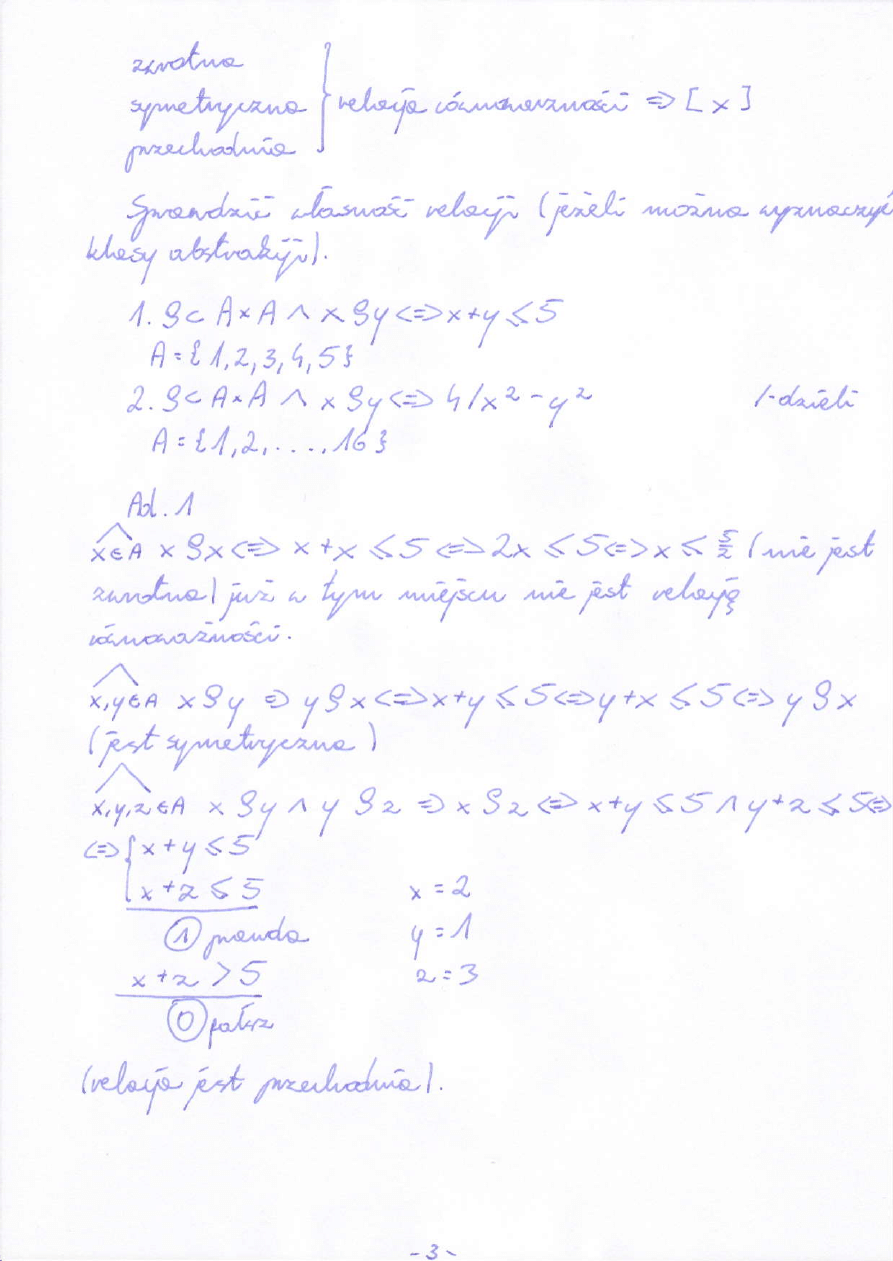 zwrotna
symetryczna } relacja równoważności => [x]
przechodnia
Sprawdzić własność relacji (jeżeli można wyznaczyć
klasy abstrakcji).
1. ρ⊂A×A ∧ xρy<=>x+y≤5
A={1,2,3,4,5}
2. ρ⊂A×A ∧ xρy<=>4/x²-y² /-dzieli
A={1,2,....,16}
Ad. 1
⋀ x∈A xρx<=>x+x≤5<=>2x≤5<=>x≤5/2 (nie jest
zwrotna) już w tym miejscu nie jest relacją
równoważności.
⋀ x,y∈A xρy => yρx<=>x+y≤5<=>y+x≤5<=>yρx
(jest symetryczna)
⋀ x,y,z∈A xρy ∧ yρz => xρz <=> x+y≤5 ∧ y+z≤5<=>
<=>{x+y≤5
x+z≤5 x=2
1 prawda y=1
x+z>5 z=3
0 fałsz
(relacja jest przechodnia).
-3-